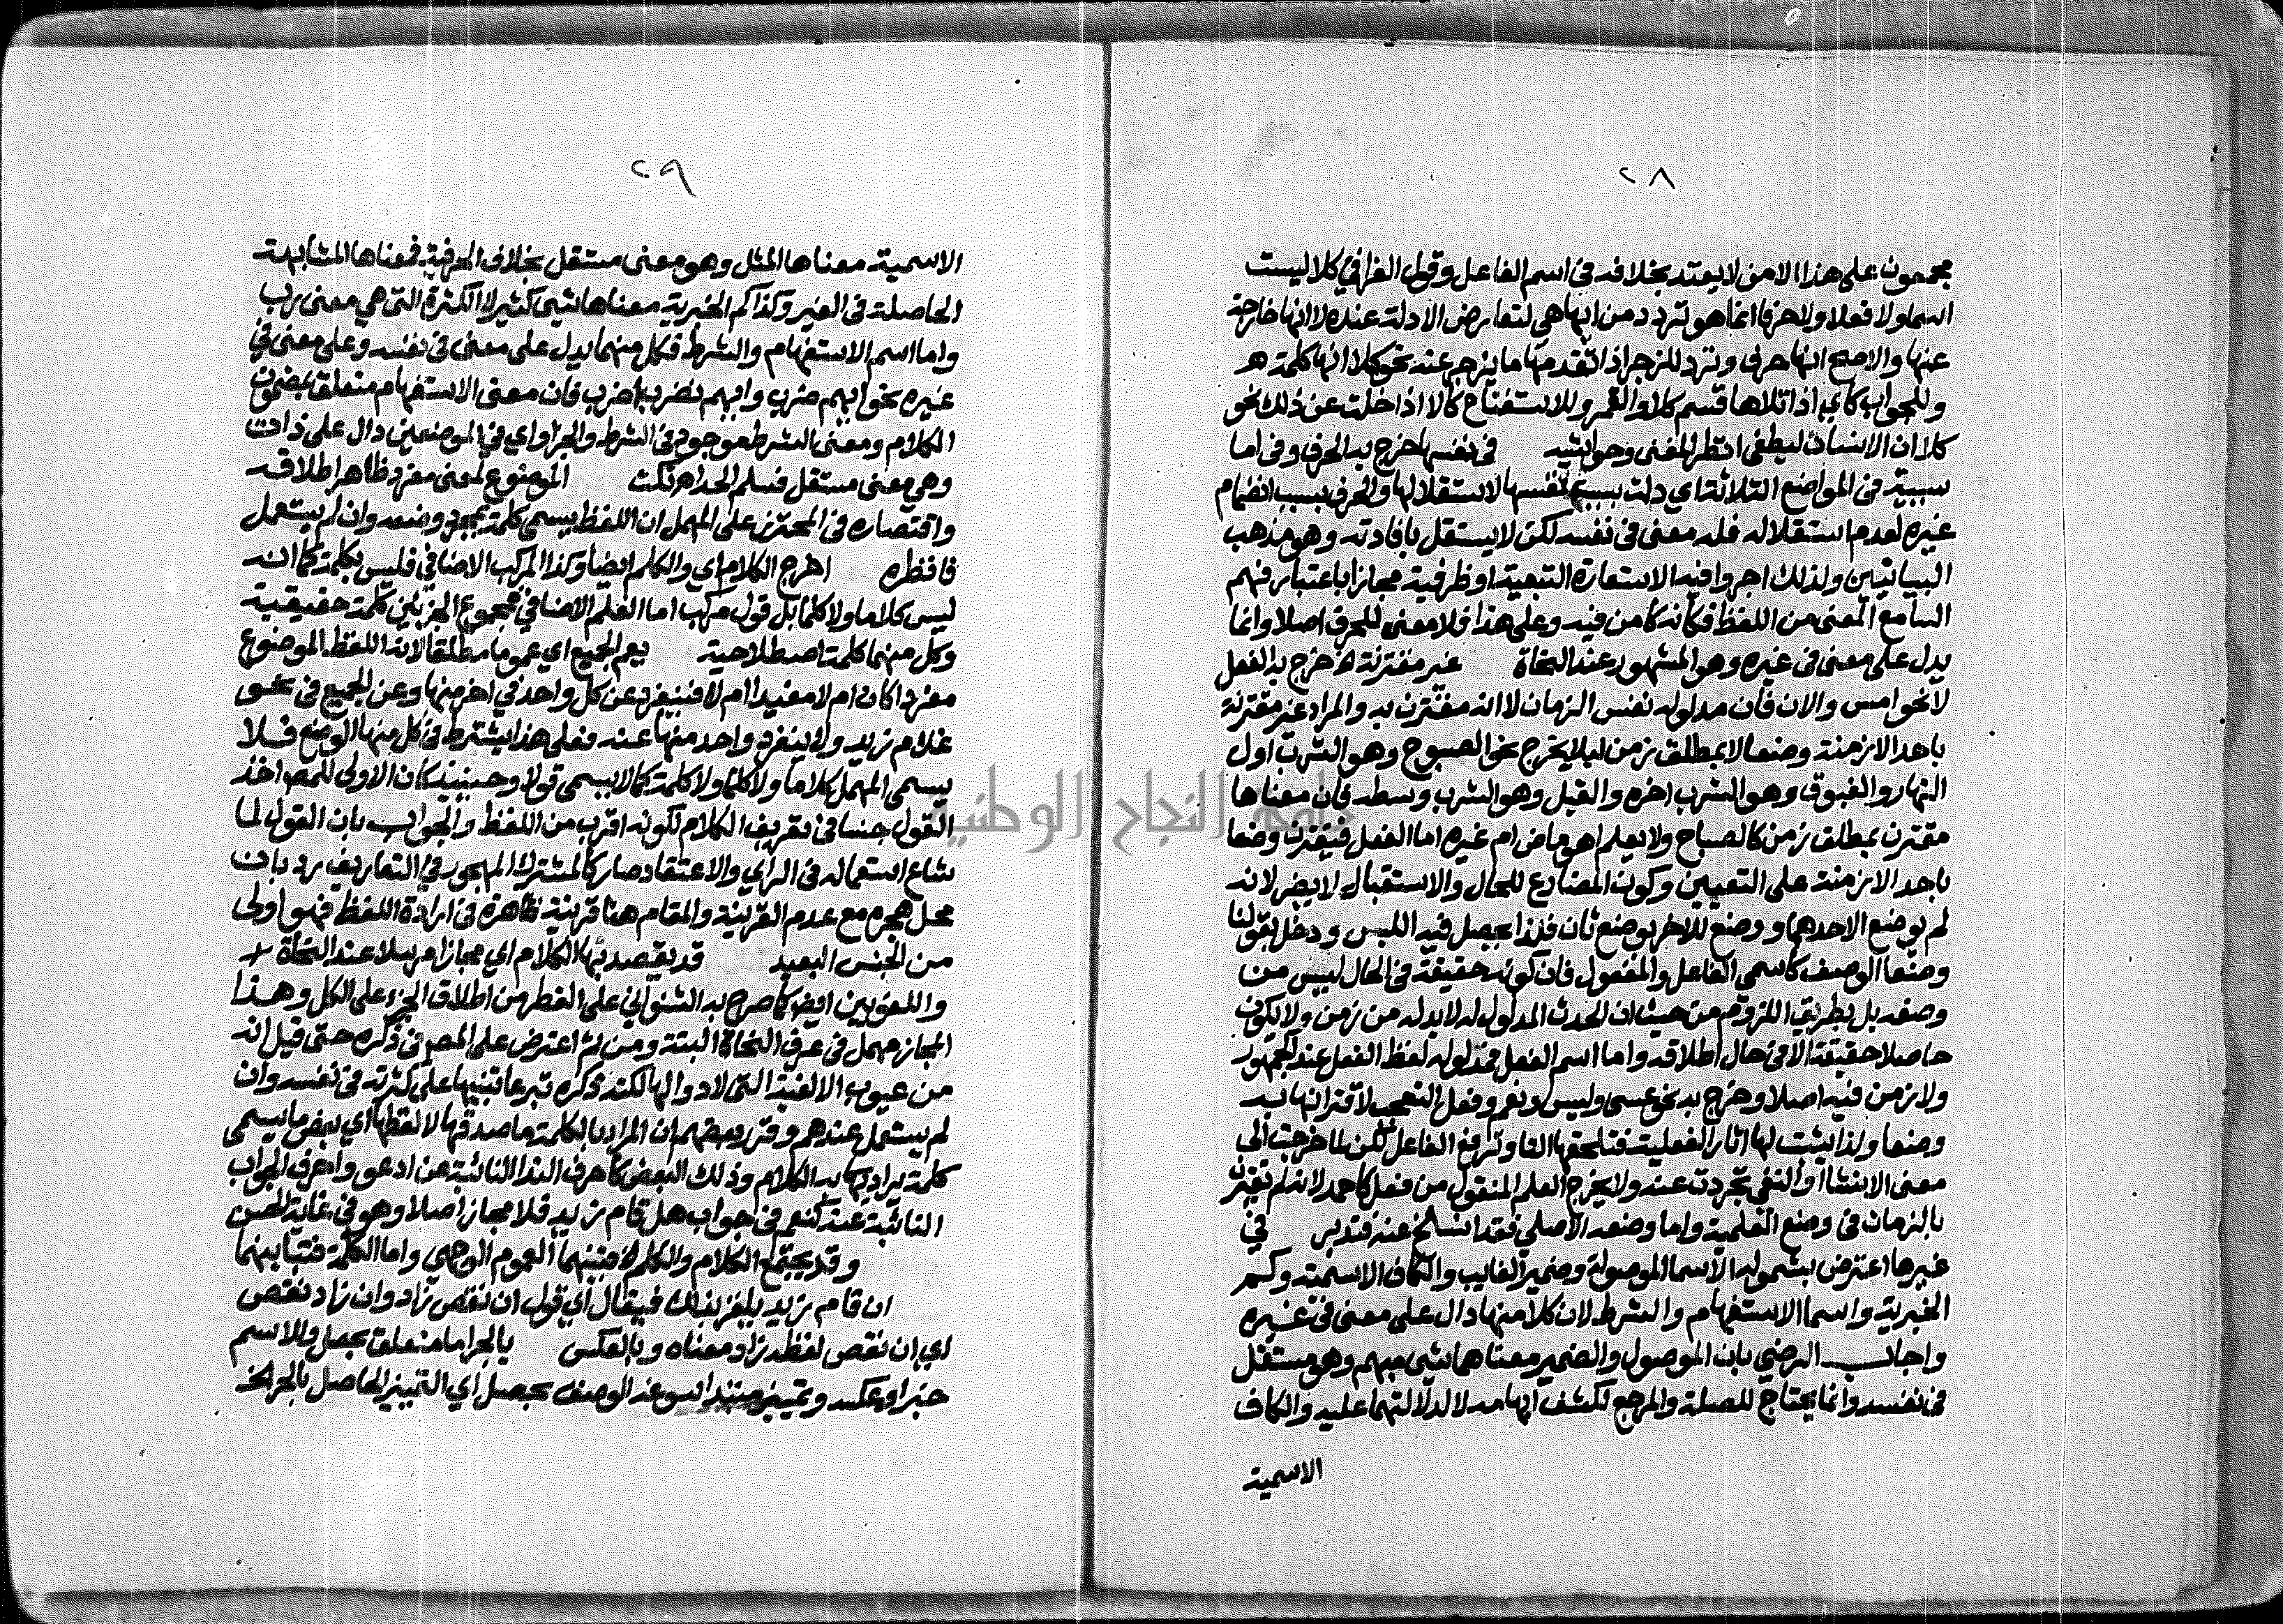 ٢٨
مجمعون على هذا الامن لا يعتد بخلافه في اسم الفاعل وقول الفراء في كلا ليست
اسما ولا فعلا ولا حرفا انما هو تردد من ايها هي لتعارض الادلة عنده لا انها خارجة
عنها والاصح انها حرف وترد للزجر اذا تقدمها ما يزجر عنه نحو كلا انها كلمة هو
وللجواب كاي اذا تلاها قسم كلا والقمر وللاستفتاح كالا اذا خلت عن ذلك نحو
كلا ان الانسان ليطغى انظر المغنى وحواشيه في نفسها خرج به الحرف وفي اما
سببية في المواضع الثلاثة اي دلت بسبب نفسها لاستقلالها والحرف بسبب انضمام
غيره لعدم استقلاله فله معنى في نفسه لكن لا يستقل بافادته وهو مذهب
البيانيين ولذلك اجروا فيه الاستعارة التبعية او ظرفية مجازا باعتبار فهم
السامع المعنى من اللفظ فكانه كامن فيه وعلى هذا فلا معنى للحرف اصلا وانما
يدل على معنى في غيره وهو المشهور عند النحاة غير مقترنة خرج به الفعل
لا نحو امس والان فان مدلوله نفس الزمان لا انه مقترن به والمراد غير مقترنة
باحد الازمنة وضعا لا بمطلق زمن ليلا يخرج نحو الصبوح وهو الشرب اول
النهار والغبوق وهو الشرب اخره والقيل وهو الشرب وسطه فان معناها
مقترن بمطلق زمن كالصباح ولا يعلم اهو ماض ام غيره اما الفعل فيقترن وضعا
باحد الازمنة على التعيين وكون المضارع للحال والاستقبال لا يضر لانه
لم يوضع الا لاحدهما ووضع للاخر بوضع ثان فلذا يحصل فيه اللبس ودخل بقولنا
وضعا الوصف كاسمى الفاعل والمفعول فان كونه حقيقة في الحال ليس من
وضعه بل بطريق اللزوم من حيث ان الحدث المدلول له لا بد له من زمن ولا يكون
حاصلا حقيقة الا في حال اطلاقه واما اسم الفعل فمدلوله لفظ الفعل عند الجمهور
ولا زمن فيه اصلا وخرج به نحو عسى وليس ونعم وفعل التعجب لاقترانها به
وضعا ولذا يثبت لها اثار الفعلية فتلحقها التا وترفع الفاعل لكن لما خرجت الى
معنى الانشا او النفي تجردت عنه ولا يخرج العلم المنقول من فعل كاحمد لانه لم يقترن
بالزمان في وضع العلمية واما وضعه الاصلي فقد انسلخ عنه فتدبر في
غيرها اعترض بشموله الاسما الموصولة وضمير الغايب والكاف الاسمية وكم
الخبرية واسما الاستفهام والشرط لان كلا منها دال على معنى في غيره
واجاب الرضي بان الموصول والضمير معناهما شي مبهم وهو مستقل
في نفسه وانما يحتاج للصلة والمرجع لكشف ابهامه لا لدلالتهما عليه والكاف
الاسمية
٢٩
الاسمية معناها المثل وهو معنى مستقل بخلاف الحرفية فمعناها المشابهة
الحاصلة في الغير وكذا كم الخبرية معناها شي كثير لا الكثرة التي هي معنى رب
واما اسم الاستفهام والشرط فكل منهما يدل على معنى في نفسه وعلى معنى في
غيره نحو ايهم ضرب وايهم تضرب اضرب فان معنى الاستفهام متعلق بمضمون
الكلام ومعنى الشرط موجود في الشرط والجزا واي في الموضعين دال على ذات
وهي معنى مستقل فسلم الحد اهـ نكت الموضوع لمعنى مفرد ظاهر اطلاقه
واقتصاره في المحترز على المهمل ان اللفظ يسمى كلمة بمجرد وضعه وان لم يستعمل
فانظره اخرج الكلام اي والكلم ايضا وكذا المركب الاضافي فليس بكلمة كما انه
ليس كلاما ولا كلما بل قول مركب اما العلم الاضافي فمجموع الجزئين كلمة حقيقية
وكل منهما كلمة اصطلاحية يعم الجميع اي عموما مطلقا لانه اللفظ الموضوع
مفردا كان ام لا مفيدا ام لا فينفرد عن كل واحد في اخر منها وعن الجميع في نحو
غلام زيد ولا ينفرد واحد منها عنه فعلى هذا يشترط في كل منها الوضع فلا
يسمى المهمل كلاما ولا كلما ولا كلمة كما لا يسمى قولا وحينئذ كان الاولى للمص اخذ
القول جنسا في تعريف الكلام لكونه اقرب من اللفظ والجواب بان القول لما
شاع استعماله في الراي والاعتقاد صار كالمشترك المهجور في التعاريف يرد بان
محل هجره مع عدم القرينة والمقام هنا قرينة ظاهرة في ارادة اللفظ فهو اولى
من الجنس البعيد قد يقصد بها الكلام اي مجازا مرسلا عند النحاة
واللغويين ايضا كما صرح به الشنواني على القطر من اطلاق الجزء على الكل وهذا
المجاز مهمل في عرف النحاة البتة ومن ثم اعترض على المص في ذكره حتى قيل انه
من عيوب الالفية التي لا دوا لها لكنه ذكره تبرعا تنبيها على كثرته في نفسه وان
لم يستعمل عندهم وقرر بعضهم ان المراد بالكلمة ما صدقها لا لفظها اي بعض ما يسمى
كلمة يراد به الكلام وذلك البعض كاحرف الندا النائبة عن ادعو واحرف الجواب
النائبة عنه كنعم في جواب هل قام زيد فلا مجاز اصلا وهو في غاية الحسن
وقد يجتمع الكلام والكلم فبينهما العموم الوجهي واما الكلمة فتباينهما
ان قام زيد يلغز بذلك فيقال اي قول ان نقص زاد وان زاد نقص
اي ان نقص لفظه زاد معناه وبالعكس بالجر اما متعلق بحصل وللاسم
خبر او عكسه وتمييز مبتدا سوغه الوصف بحصل اي التمييز الحاصل بالجر الخ